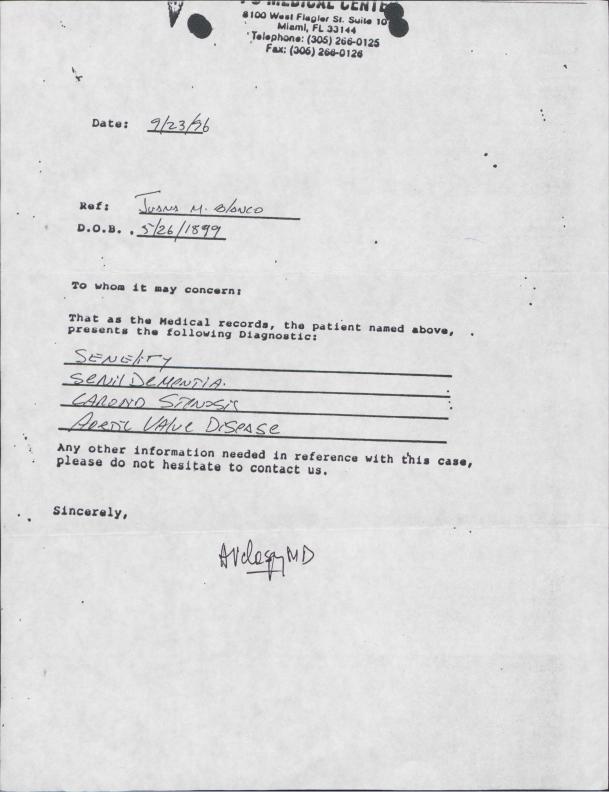 MEDICAL CENTE
8100 West Flagler St. Suite 10
Miami, FL 33144
Telephone: (305) 266-0125
Fax: (305) 266-0126
Date: 9/23/96
Ref: Juana M. Blanco
D.O.B. . 5/26/1899
To whom it may concern:
That as the Medical records, the patient named above,
presents the following Diagnostic:
SENELITY
SENIL DEMENTIA.
CAROTID STENOSIS
AORTIC VALVE DISEASE
Any other information needed in reference with this case,
please do not hesitate to contact us.
Sincerely,
MD